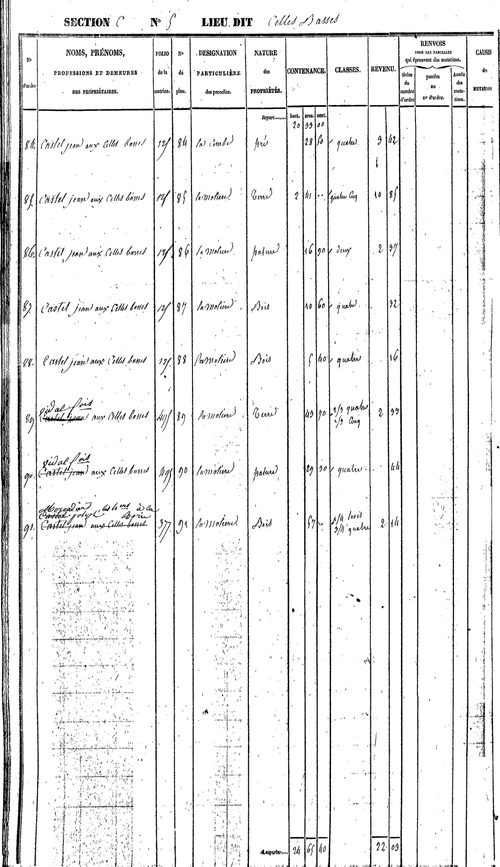 SECTION C N° 5 LIEU DIT Celles Basses
N° d'ordre NOMS, PRÉNOMS, PROFESSIONS ET DEMEURES DES PROPRIÉTAIRES. FOLIO de la matrice. N° du plan. DESIGNATION PARTICULIÈRE des parcelles. NATURE des PROPRIÉTÉS. CONTENANCE. CLASSES. REVENU. RENVOIS POUR LES PARCELLES qui éprouvent des mutations. CAUSE de MUTATION
hect. ares. cent.
Report 20 99 00
84. Castel jean aux Celles basses 125 84 la combe pré 28 50 quatre 9 62
85. Castel jean aux Celles basses 125 85 lamoliere Terre 2 41 quatre Cinq 10 85
86. Castel jean aux Celles basses 125 86 lamoliere pature 36 90 deux 2 97
87. Castel jean aux Celles basses 125 87 lamoliere Bois 10 60 quatre 32
88. Castel jean aux Celles basses 125 88 lamoliere Bois 5 40 quatre 16
vidal fois
89. Castel jean aux Celles basses 495 89 lamoliere Terre 43 90 2/3 quatre 1/3 Cinq 2 93
vidal fois
90. Castel jean aux Celles basses 495 90 lamoliere pature 29 30 quatre 44
91. Castel jean aux Celles basses 377 91 lamoliere Bois 57 trois quatre 2 14
A reporter 24 65 40 22 03